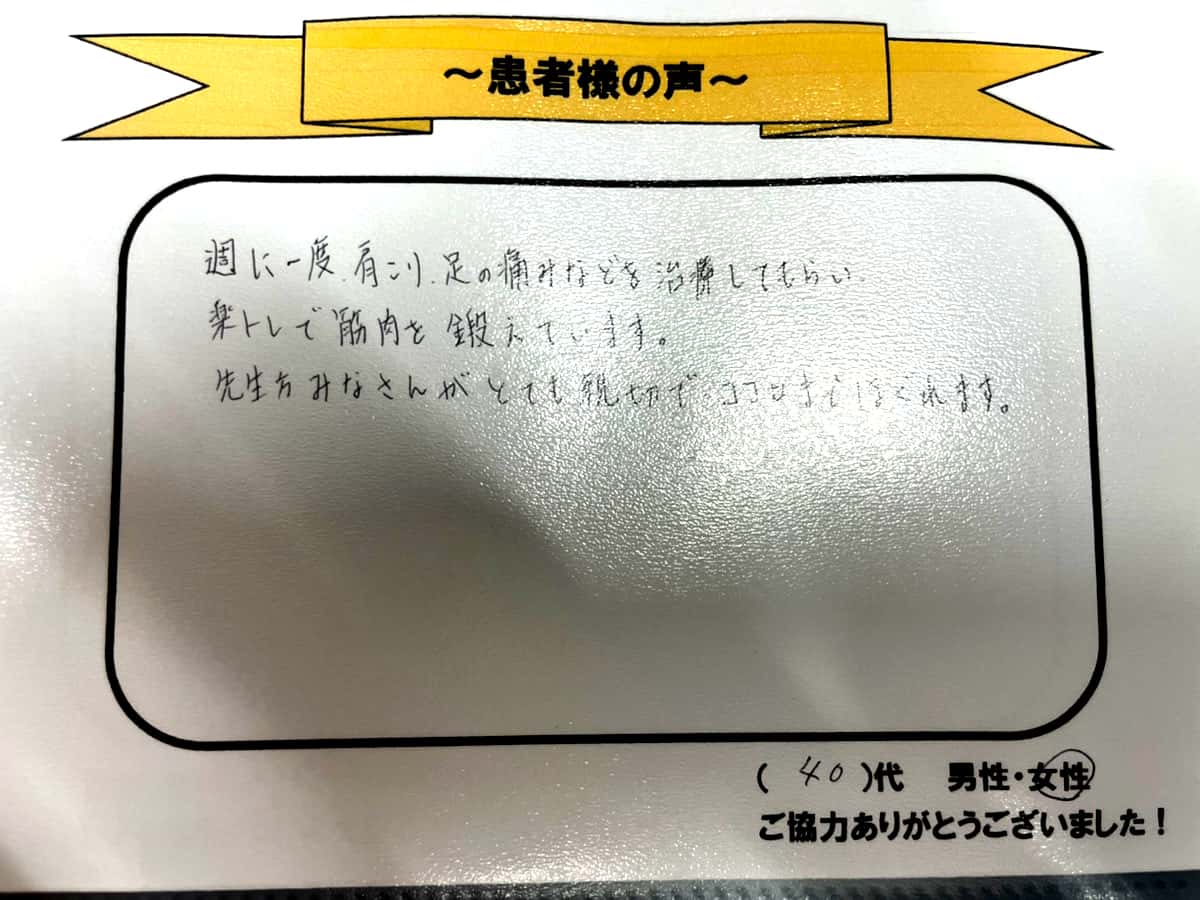 ～患者様の声～
週に一度、肩こり、足の痛みなどを治療してもらい、
楽トレで筋肉を鍛えています。
先生方みなさんがとても親切で、ココロまでほぐれます。
( 40 )代 男性・女性
ご協力ありがとうございました！